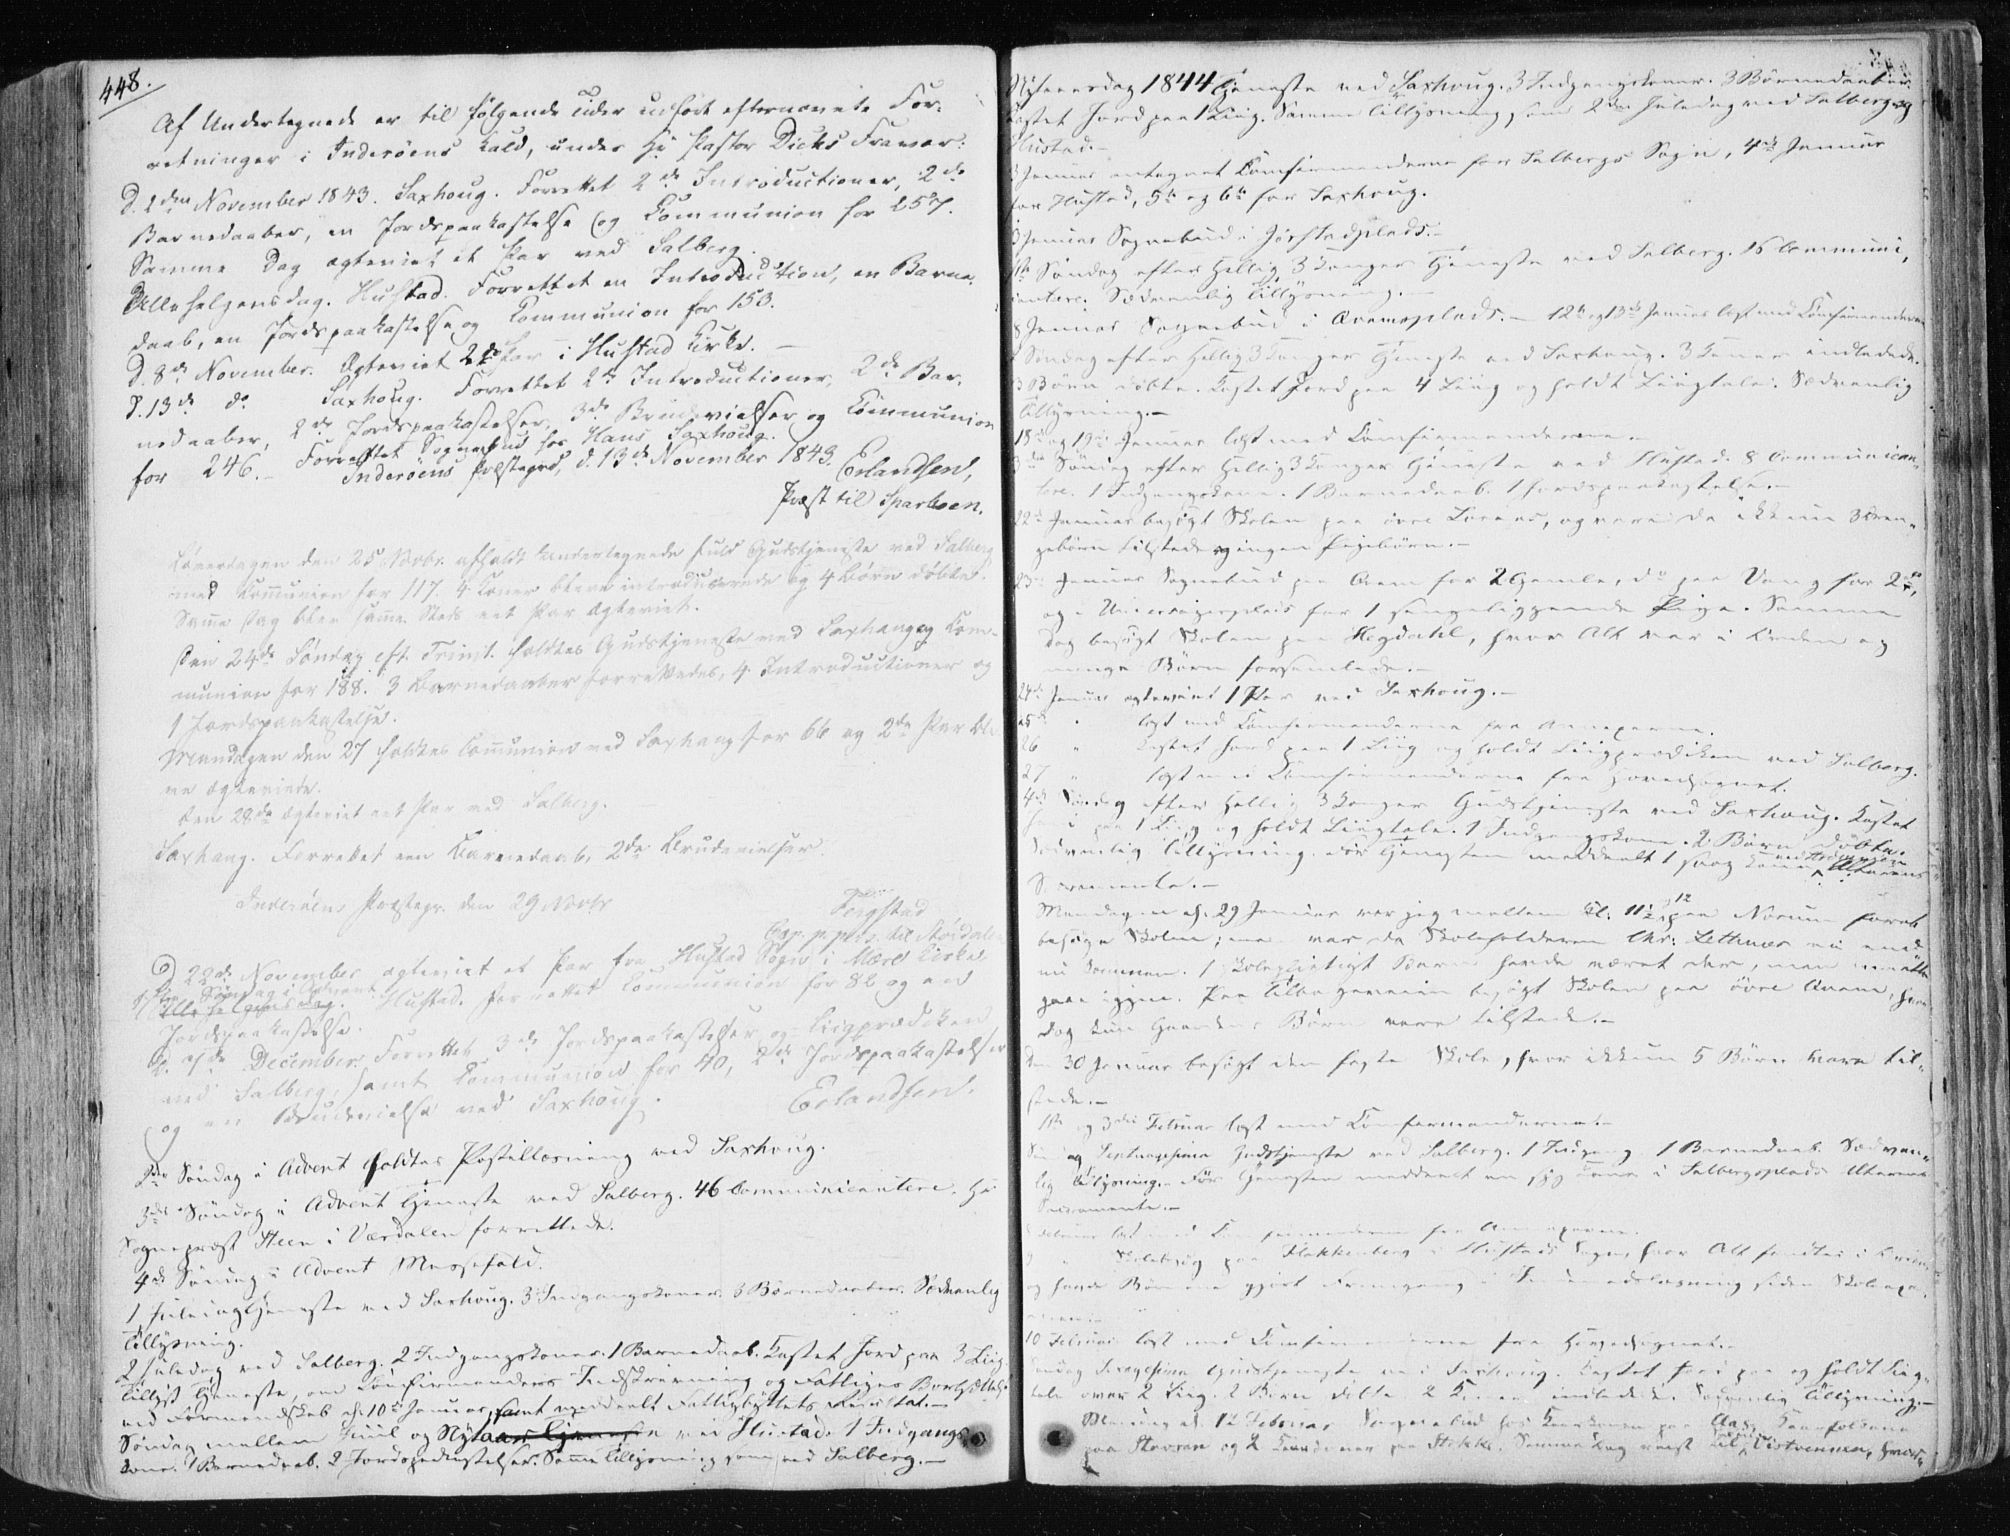 448.
Af Undertegnede er til følgende Tider udført efternævnte For-
retninger i Inderøens Kald, under Hr Pastor Dicks Fravær:
D. 2den November 1843. Saxhoug. Forrettet 2de Introductioner, 2de
Barnedaaber, en Jordspaakastelse og Communion for 257.
Samme Dag ægteviet et Par ved Salberg.
Allehelgensdag. Hustad. Forrettet en Introduction, en Barne-
daab, en Jordspaakastelse og Communion for 153.
D. 8de November. Ægteviet 2de Par i Hustad Kirke. —
D. 13de do Saxhoug. Forrettet 2de Introductioner, 2de Bar-
nedaaber, 2de Jordspaakastelser, 3de Brudevielser og Communion
for 246. — Forrettet Sognebud hos Hans Saxhoug.
Inderøens Præstegrd, d. 13de November 1843. Erlandsen,
Præst til Sparboen.
Løverdagen den 25 Novbr. afholdt Undertegnede fuld Gudstjeneste ved Salberg
med Communion for 117. 4 Koner bleve introducerede og 4 Børn døbte.
Samme Dag blev samme Steds eet Par ægteviet.
Den 24de Søndag eft. Trinit. holdtes Gudstjeneste ved Saxhaug og Com-
munion for 188. 3 Barnedaaber forrettedes, 4 Introductioner og
1 Jordspaakastelse.
Mandagen den 27 holdtes Communion ved Saxhaug for 66 og 2de Par ble-
ve ægteviede.
Den 28de ægteviet eet Par ved Salberg.
Saxhaug. Forrettet een Barnedaab, 2de Brudevielser.
Inderøens Præstegr. den 29 Novbr
D 22de November ægteviet et Par fra Hustad Sogn i Mære Kirke.
1ste Søndag i Advent Hustad. Forrettet Communion for 82 og en
Jordspaakastelse.
D. 7de December. Forrettet 3de Jordspaakastelser og Liigprædiken
ved Salberg, samt Communion for 40, 2de Jordspaakastelser
og en Brudevielse ved Saxhoug. Erlandsen.
2den Søndag i Advent holdtes Postillæsning ved Saxhoug.
3die Søndag i Advent Tjeneste ved Salberg. 46 Communicantere. Hr
Sognepræst Steen i Værdalen forrettede.
4de Søndag i Advent Messefald.
1 Juledag Tjeneste ved Saxhoug. 3 Indgangskoner. 3 Barnedaaber. Sædvanlig
Tillysning.
2 Juledag ved Salberg. 2 Indgangskoner. 1 Barnedaab. Kastet Jord paa 3 Liig.
Tillyst Tjeneste, om Confirmanders Indskrivning og Fattiges Bortsættelse
ved Formandskab d. 10de Januar, samt meddeelt Fattigbyttets Resultat. —
Søndag mellem Juul og Nytaar Tjeneste ved Hustad. 1 Indgangs-
kone. 1 Barnedaab. 2 Jordspaakastelser. Samme Tillysning som ved Salberg. —
Nytaarsdag 1844 Tjeneste ved Saxhoug. 3 Indgangskoner. 3 Barnedaaber.
Kastet Jord paa 1 Liig. Samme Tillysning, som 2den Juledag ved Salberg og
Hustad. —
3 Januar antegnet Confirmanderne for Salbergs Sogn, 4de Januar
for Hustad, 5te og 6te for Saxhoug.
Januar Sognebud i
1ste Søndag efter Hellig 3 Konger Tjeneste ved Salberg. 16 Communi-
cantere. Sædvanlig Tillysning. —
8 Januar Sognebud i — 12te og 13de Januar læst med Confirmanderne
2 Søndag efter Hellig 3 Konger Tjeneste ved Saxhoug. 3 Koner indledede.
3 Børn døbte. Kastet Jord paa 4 Liig og holdt Liigtale. Sædvanlig
Tillysning. —
18de og 19de Januar læst med Confirmanderne. —
3die Søndag efter Hellig 3 Konger Tjeneste ved Hustad. 8 Communican-
tere. 1 Indgangskone. 1 Barnedaab. 1 Jordspaakastelse. —
22de Januar besøgt Skolen paa øvre , og vare da ikkun 3 Dren-
gebørn tilstede og ingen Pigebørn. —
23de Januar Sognebud paa for 2 Gamle, do paa Vang for 2de,
og i for 1 sengeliggende Pige. Samme
Dag besøgt Skolen paa Hegdahl, hvor Alt var i Orden og
mange Børn forsamlede. —
24de Januar ægteviet 1 Par ved Saxhoug. —
25de " læst med Confirmanderne fra Annexerne.
26 " kastet Jord paa 1 Liig og holdt Liigprædiken ved Salberg.
27 " læst med Confirmanderne fra Hovedsognet.
4de Søndag efter Hellig 3 Konger Gudstjeneste ved Saxhoug. Kastet
Jord paa 1 Liig og holdt Liigtale. 1 Indgangskone. 2 Børn døbte.
Sædvanlig Tillysning. Før Tjenesten meddeelt 1 svag Kone Alterens
Sacramente. —
Mandagen d. 29 Januar var jeg mellem Kl. 11 og 12 paa Norum for at
besøge Skolen; men var da Skoleholderen Chr: Letthnæs ei end-
nu kommen. 1 skolepligtigt Barn havde været der, men maatte
gaae igjen. Paa Tilbageveien besøgt Skolen paa øvre , hvor
dog kun Gaardens Børn vare tilstede. —
Den 30 Januar besøgt den faste Skole, hvor ikkun 5 Børn vare til-
stede. —
1ste og 3die Februar læst med Confirmanderne. —
Søndag Septuagesima Gudstjeneste ved Salberg. 1 Indgang. 1 Barnedaab. Sædvan-
lig Tillysning. — Før Tjenesten meddeelt en syg Kone i Salbergsplads Alterens
Sacramente. —
Februar læst med Confirmanderne fra Annexerne.
9 " Skolebesøg paa Flakkenberg i Hustads Sogn, hvor Alt fandtes i Orden
og havde Børnene gjort Fremgang i Indenadslæsning siden Skoleexa-
men. —
10 Februar læst med Confirmanderne fra Hovedsognet. —
Søndag Sexagesima Gudstjeneste ved Saxhoug. Kastet Jord paa og holdt Liig-
tale over 2 Liig. 2 Børn døbte. 2 Koner indledede. Sædvanlig Tillysning. —
Mandag d. 12 Februar Sognebud hos
paa og 2 paa . Samme Dag